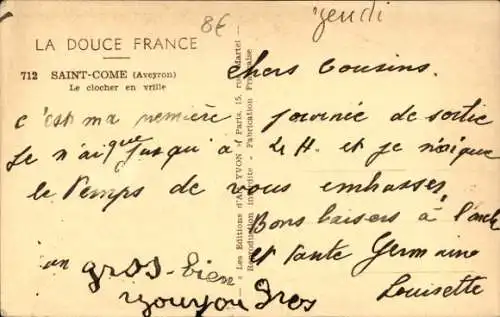 8€
jeudi
LA DOUCE FRANCE
712 SAINT-COME (Aveyron)
Le clocher en vrille
Chers Cousins.
c'est ma première journée de sortie
Je n'ai que jusqu'à 4 H. et je n'ai que
le temps de vous embrasser
Bons baisers à l'oncle
et tante Germaine
Louisette
un gros-bien
Gros
"Les Editions d'Art YVON" Paris, 15, rue Martel
Reproduction interdite - Fabrication Française